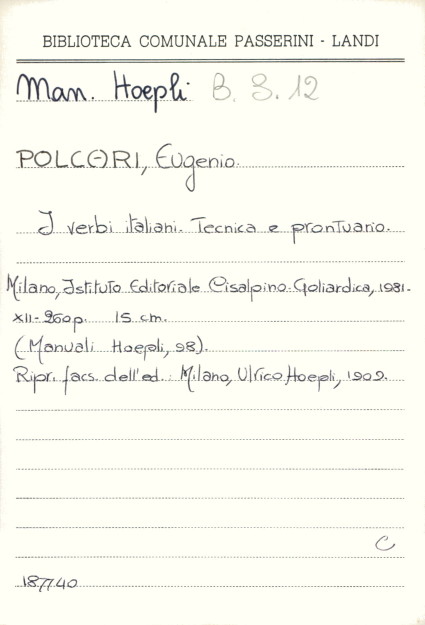 BIBLIOTECA COMUNALE PASSERINI - LANDI
Man. Hoepli B. S. 12
POLCARI, Eugenio.
I verbi italiani. Tecnica e prontuario.
Milano, Istituto Editoriale Cisalpino-Goliardica, 1981.
XII-260 p. 15 cm.
(Manuali Hoepli, 98).
Ripr. facs. dell'ed.: Milano, Ulrico Hoepli, 1909.
C
187740